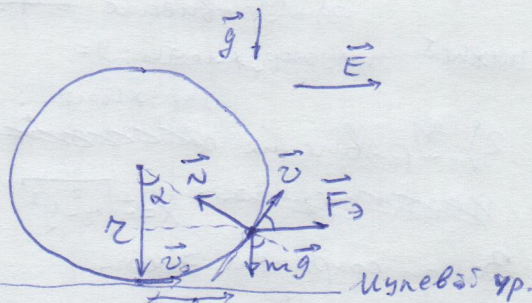 g
E
α
N
v
Fэ
r
v₀
mg
Нулевой ур.